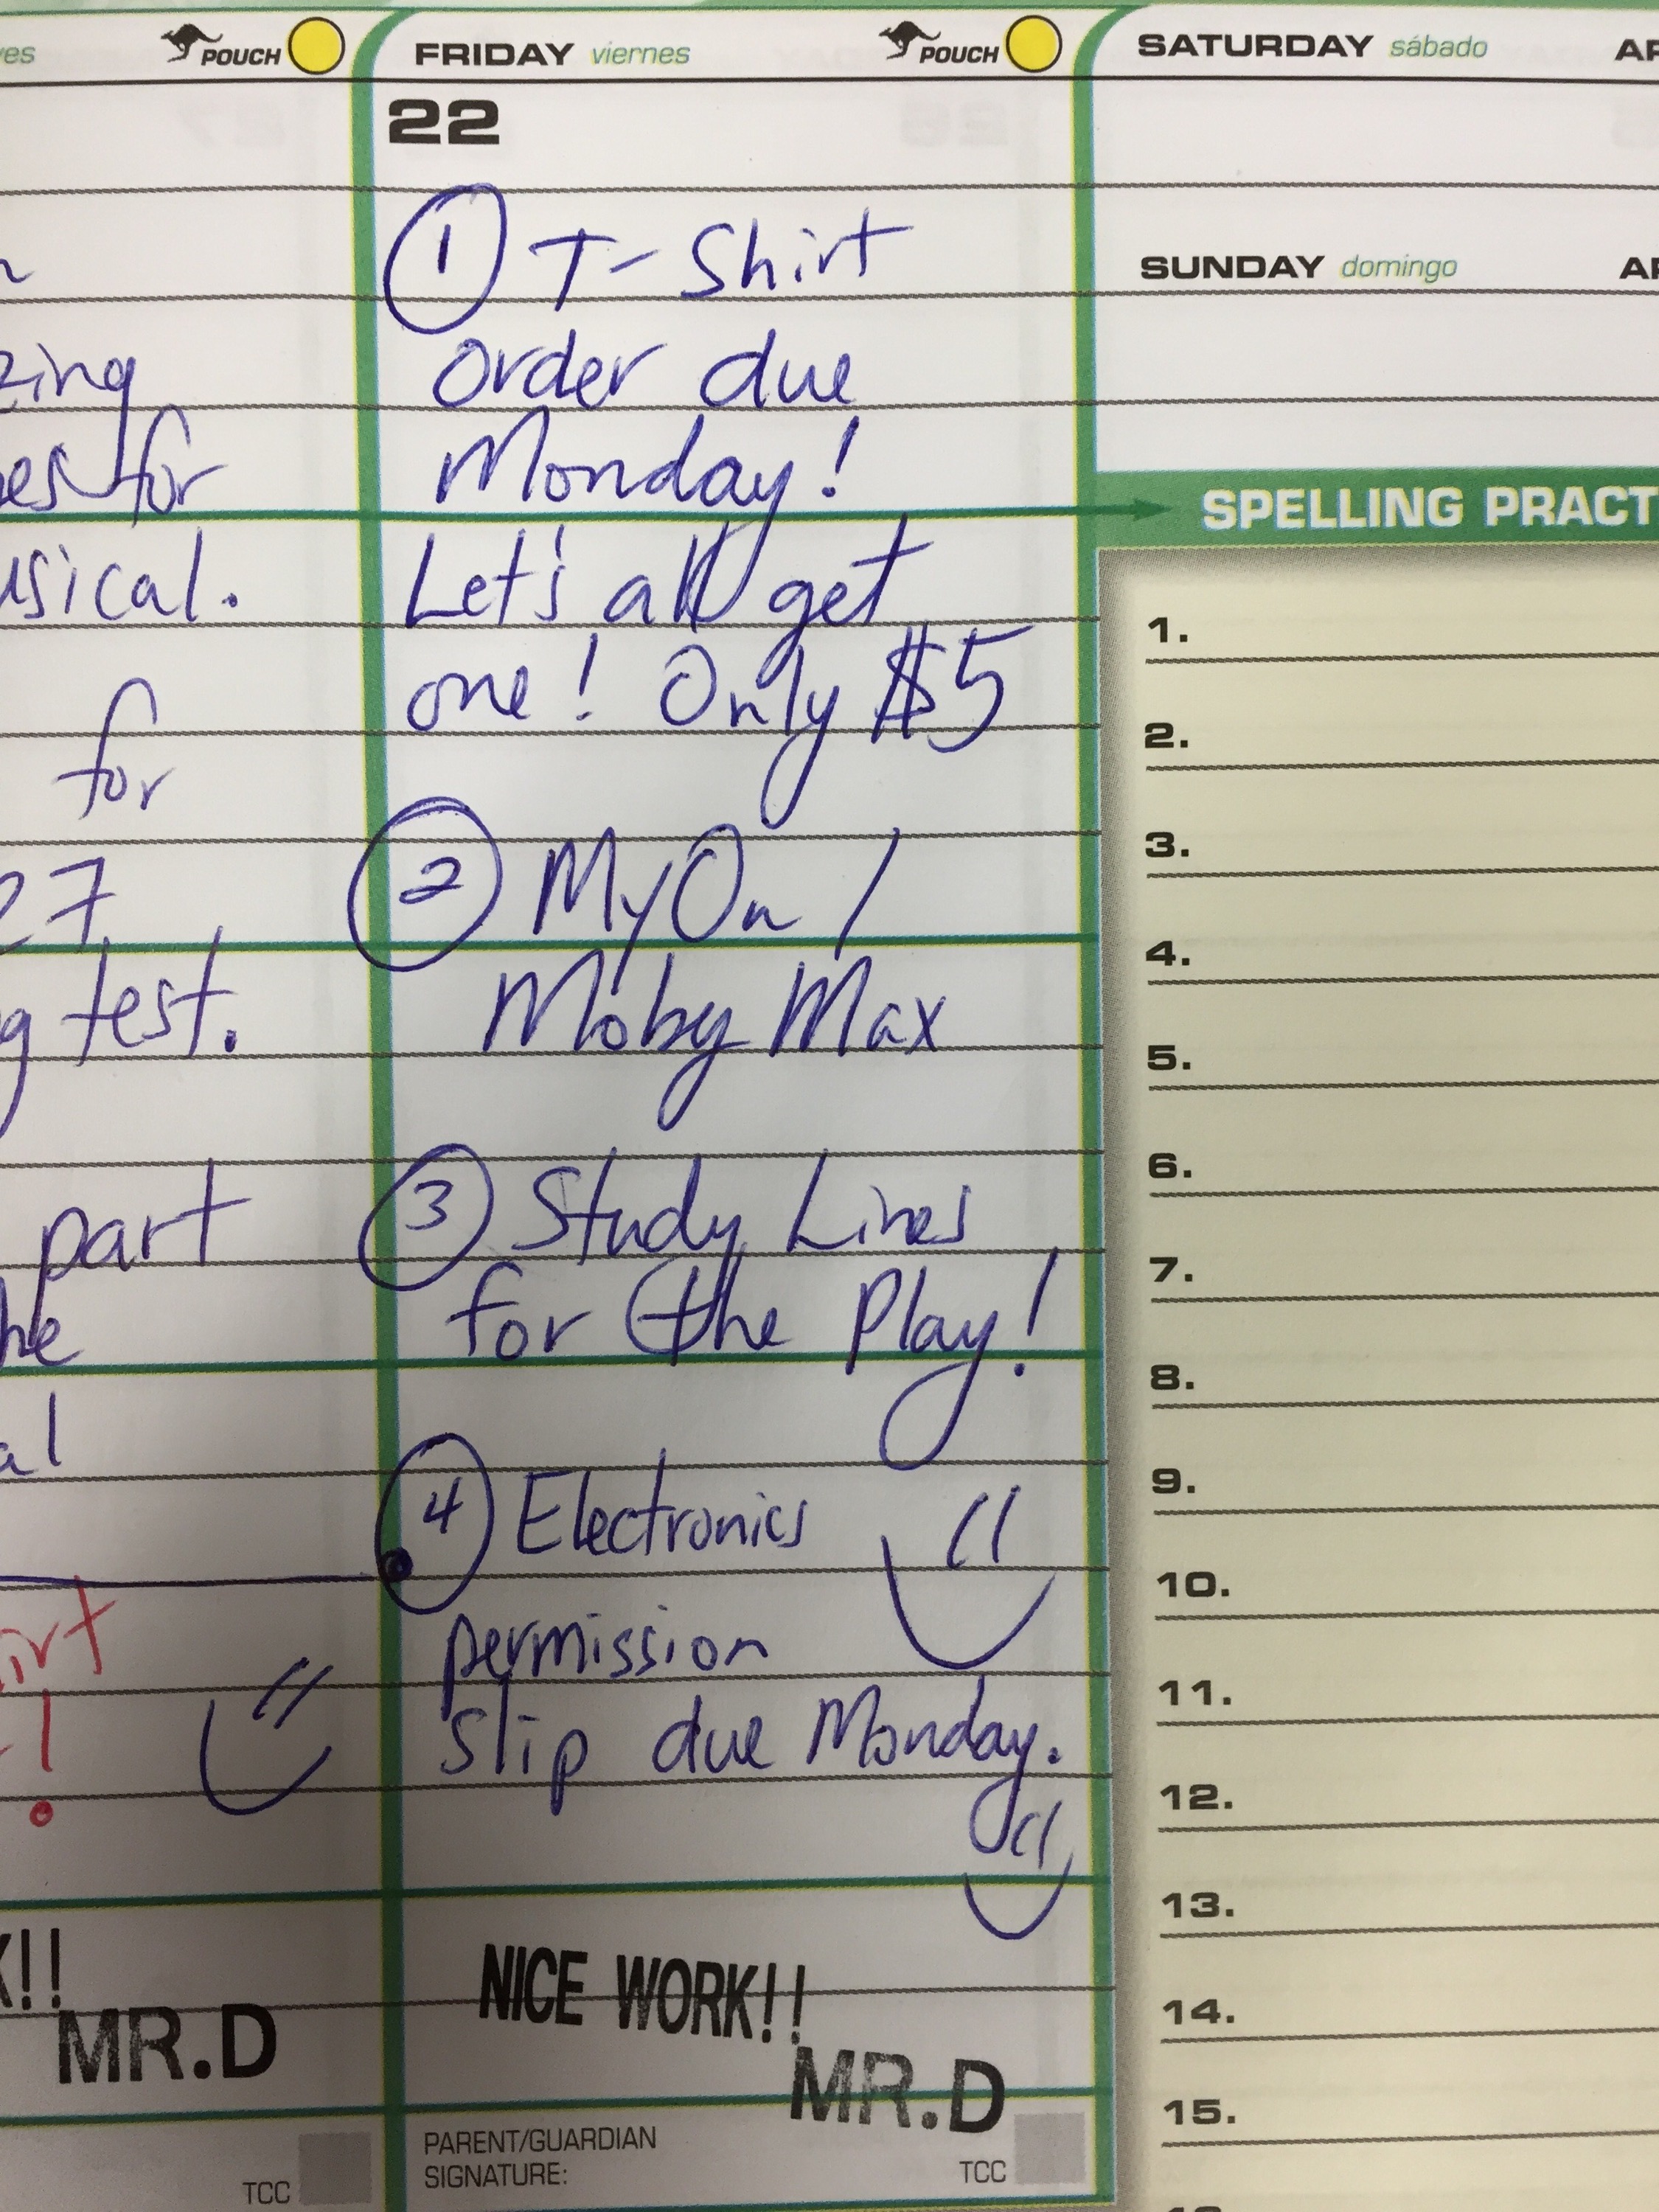 POUCH
n
zing
es for
usical.
for
27
g test.
part
he
al
irt
!
K!!
MR.D
TCC
FRIDAY viernes
POUCH
22
① T-Shirt
Order due
Monday!
Let's all get
one! Only $5
② MyOn /
Moby Max
③ Study Lines
for the Play!
④ Electronics
permission
slip due Monday.
NICE WORK!!
MR.D
PARENT/GUARDIAN
SIGNATURE:
TCC
SATURDAY sábado
SUNDAY domingo
SPELLING PRACT
1.
2.
3.
4.
5.
6.
7.
8.
9.
10.
11.
12.
13.
14.
15.